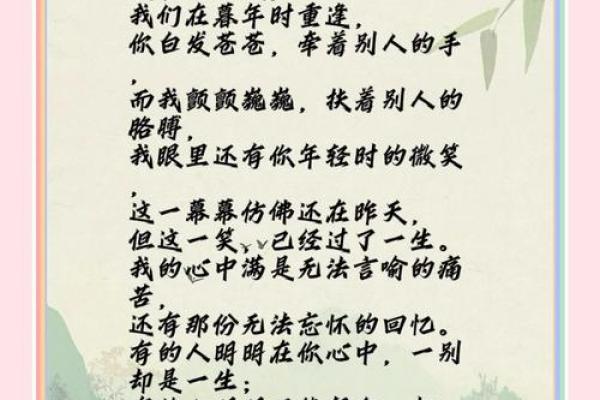 我们在暮年时重逢,
你白发苍苍, 牵着别人的手
,
而我颤颤巍巍, 扶着别人的
胳膊,
我眼里还有你年轻时的微笑
,
这一幕幕仿佛还在昨天,
但这一笑, 已经过了一生。
我的心中满是无法言喻的痛
苦,
还有那份无法忘怀的回忆。
有的人明明在你心中, 一别
却是一生;